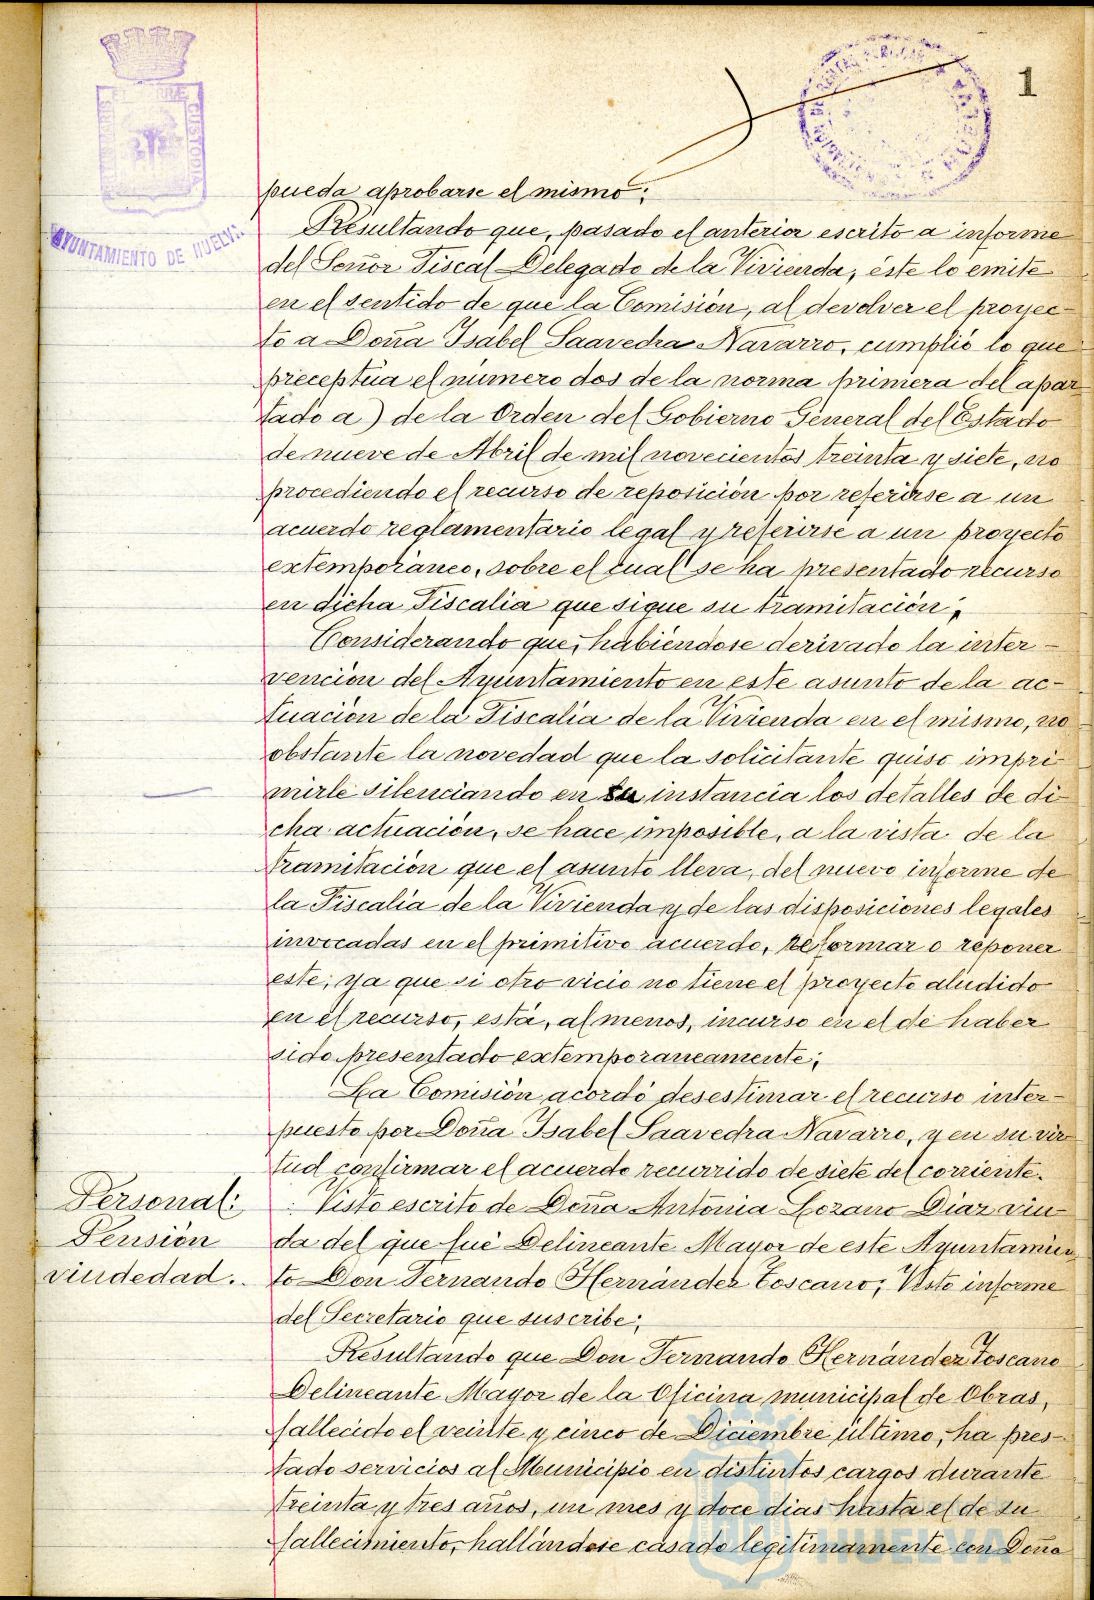 1
AYUNTAMIENTO DE HUELVA
pueda aprobarse el mismo;
Resultando que, pasado el anterior escrito a informe
del Señor Fiscal Delegado de la Vivienda, éste lo emite
en el sentido de que la Comisión, al devolver el proyec-
to a Doña Isabel Saavedra Navarro, cumplió lo que
preceptúa el número dos de la norma primera del apar-
tado a) de la Orden del Gobierno General del Estado
de nueve de Abril de mil novecientos treinta y siete, no
procediendo el recurso de reposición por referirse a un
acuerdo reglamentario legal y referirse a un proyecto
extemporáneo, sobre el cual se ha presentado recurso
en dicha Fiscalia que sigue su tramitación;
Considerando que, habiéndose derivado la inter-
vención del Ayuntamiento en este asunto de la ac-
tuación de la Fiscalía de la Vivienda en el mismo, no
obstante la novedad que la solicitante quiso impri-
mirle silenciando en su instancia los detalles de di-
cha actuación, se hace imposible, a la vista de la
tramitación que el asunto lleva, del nuevo informe de
la Fiscalía de la Vivienda y de las disposiciones legales
invocadas en el primitivo acuerdo, reformar o reponer
este, ya que si otro vicio no tiene el proyecto aludido
en el recurso, está, al menos, incurso en el de haber
sido presentado extemporaneamente;
La Comisión acordó desestimar el recurso inter-
puesto por Doña Isabel Saavedra Navarro, y en su vir-
tud confirmar el acuerdo recurrido de siete del corriente.
Personal:
Pensión
viudedad.
Visto escrito de Doña Antonia Lozano Díaz viu-
da del que fué Delineante Mayor de este Ayuntamien-
to Don Fernando Hernández Toscano; Visto informe
del Secretario que suscribe;
Resultando que Don Fernando Hernández Toscano
Delineante Mayor de la Oficina municipal de Obras,
fallecido el veinte y cinco de Diciembre último, ha pres-
tado servicios al Municipio en distintos cargos durante
treinta y tres años, un mes y doce dias hasta el de su
fallecimiento, hallándose casado legitimamente con Doña
HUELVA